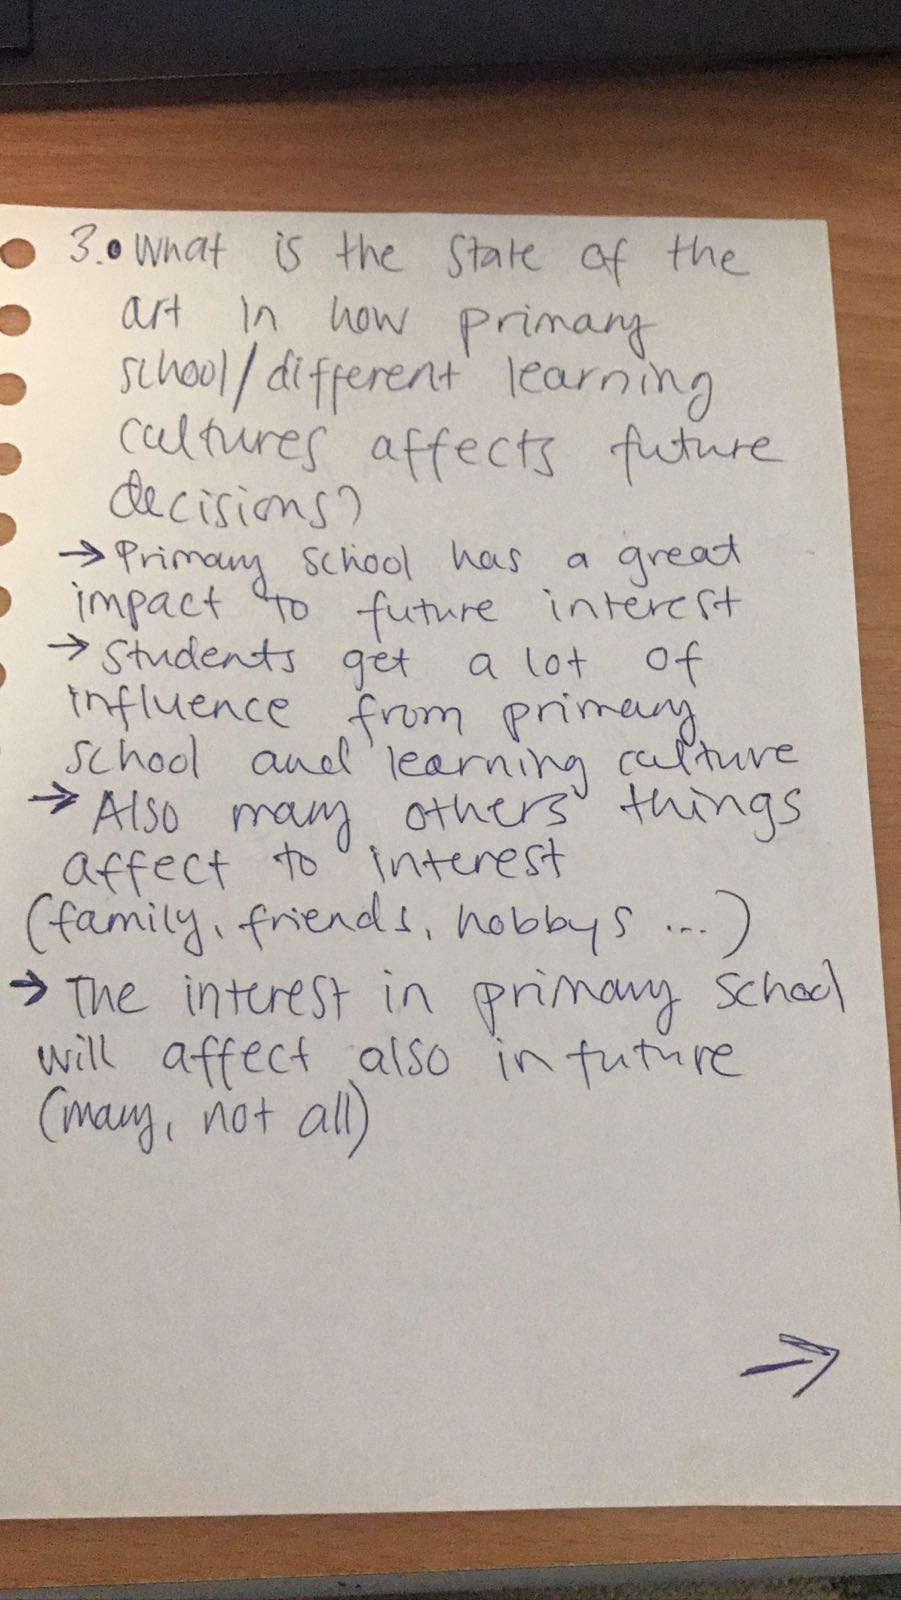 3. What is the state of the
art in how primary
school/different learning
cultures affects future
decisions?
→ Primary school has a great
impact to future interest
→ Students get a lot of
influence from primary
school and learning culture
→ Also many others things
affect to interest
(family, friends, hobbys ...)
→ The interest in primary school
will affect also in future
(many, not all)
→